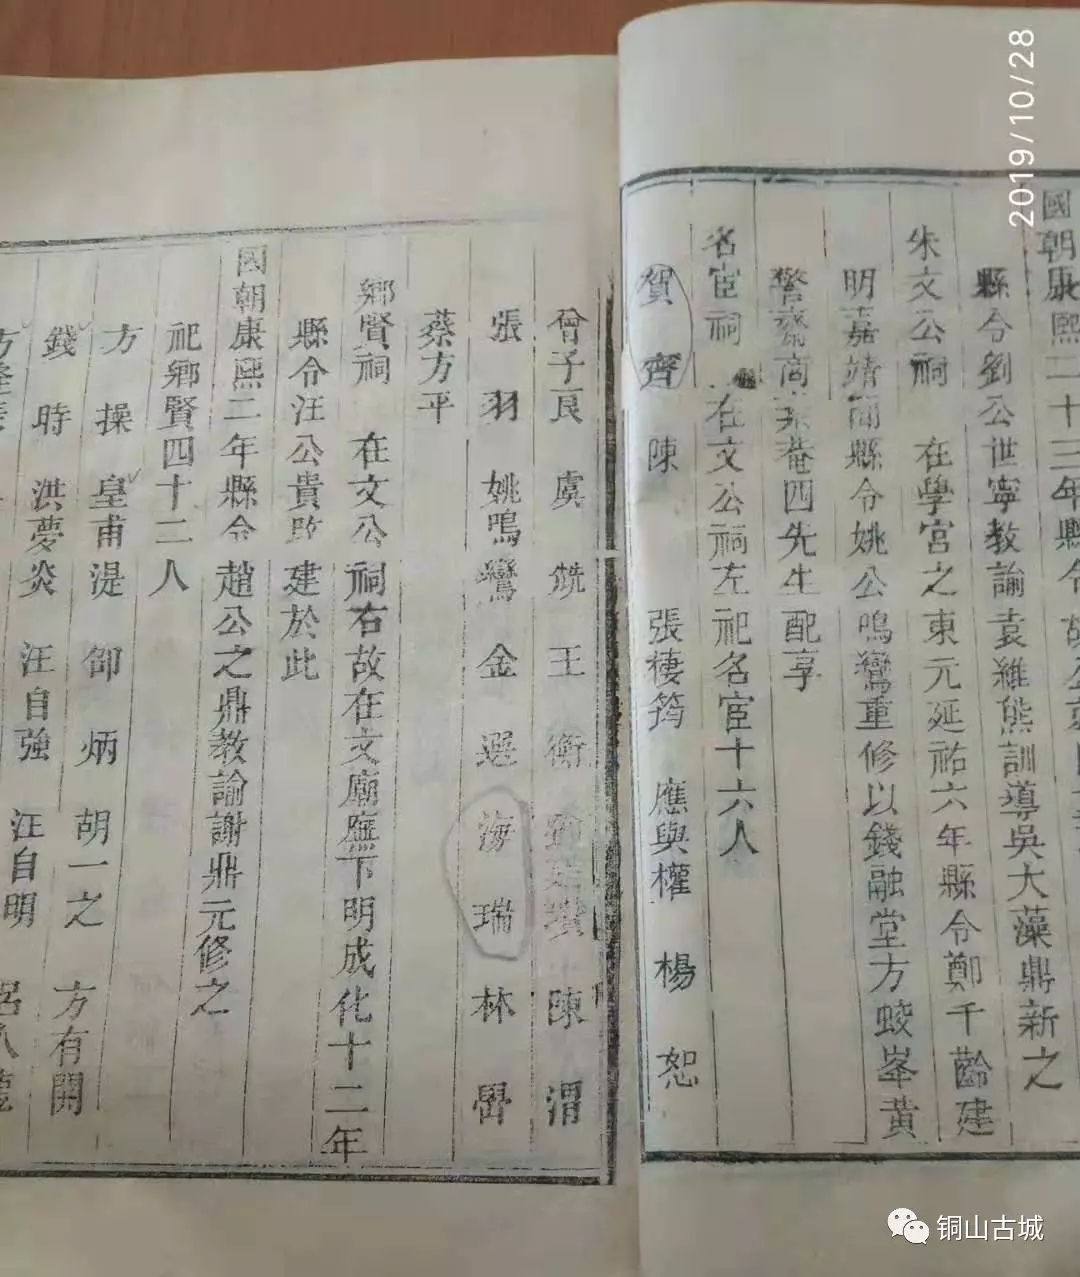 國朝康熙二十三年縣令胡公
縣令劉公世寧教諭袁維熊訓導吳大藻鼎新之
朱文公祠 在學宮之東元延祐六年縣令鄭千齡建
明嘉靖間縣令姚公鳴鸞重修以錢融堂方蛟峯黃
警齋商菴四先生配享
名宦祠 在文公祠左祀名宦十六人
賀齊 陳 張棲筠 應與權 楊恕
曾子良 虞 王衡 陳渭
張羽 姚鳴鸞 金選 海瑞 林
蔡方平
鄉賢祠 在文公祠右故在文廟廡下明成化十二年
縣令汪公貴改建於此
國朝康熙二年縣令趙公之鼎教諭謝鼎元修之
祀鄉賢四十二人
方操 皇甫湜 邵炳 胡一之 方有開
錢時 洪夢炎 汪自強 汪自明 呂人龍
方逢
2019/10/28
铜山古城